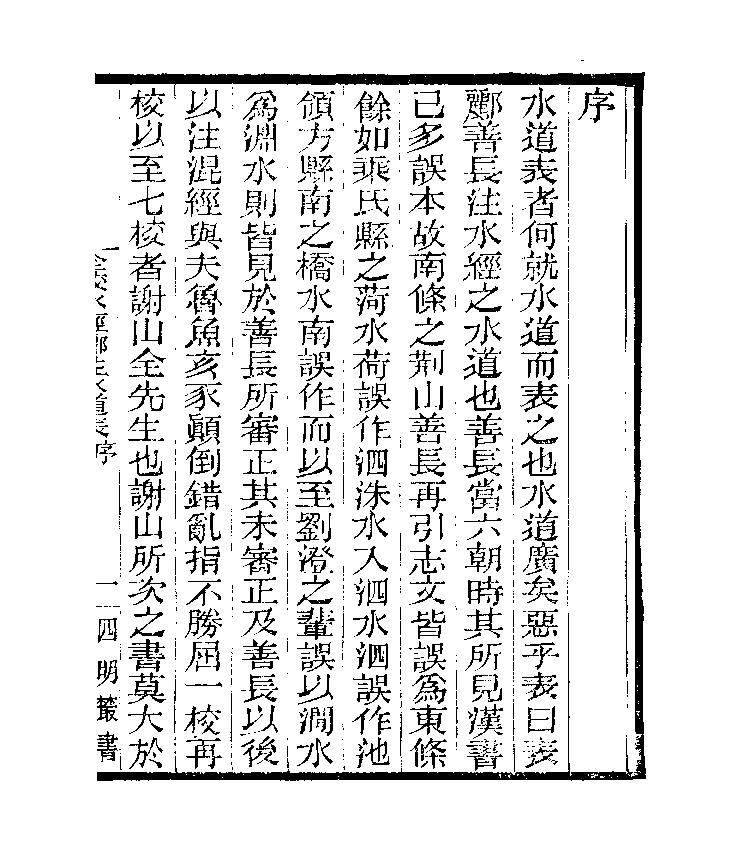 序
水道表者何就水道而表之也水道廣矣惡乎表曰表
酈善長注水經之水道也善長當六朝時其所見漢書
已多誤本故南條之荆山善長再引志文皆誤爲東條
餘如乘氏縣之菏水荷誤作泗洙水入泗水泗誤作池
須方縣南之橋水南誤作而以至劉澄之輩誤以澗水
爲淵水則皆見於善長所審正其未審正及善長以後
以注混經與夫魯魚亥豕顚倒錯亂指不勝屈一校再
校以至七校者謝山全先生也謝山所次之書莫大於
全校水經酈注水道表序
一
四明叢書